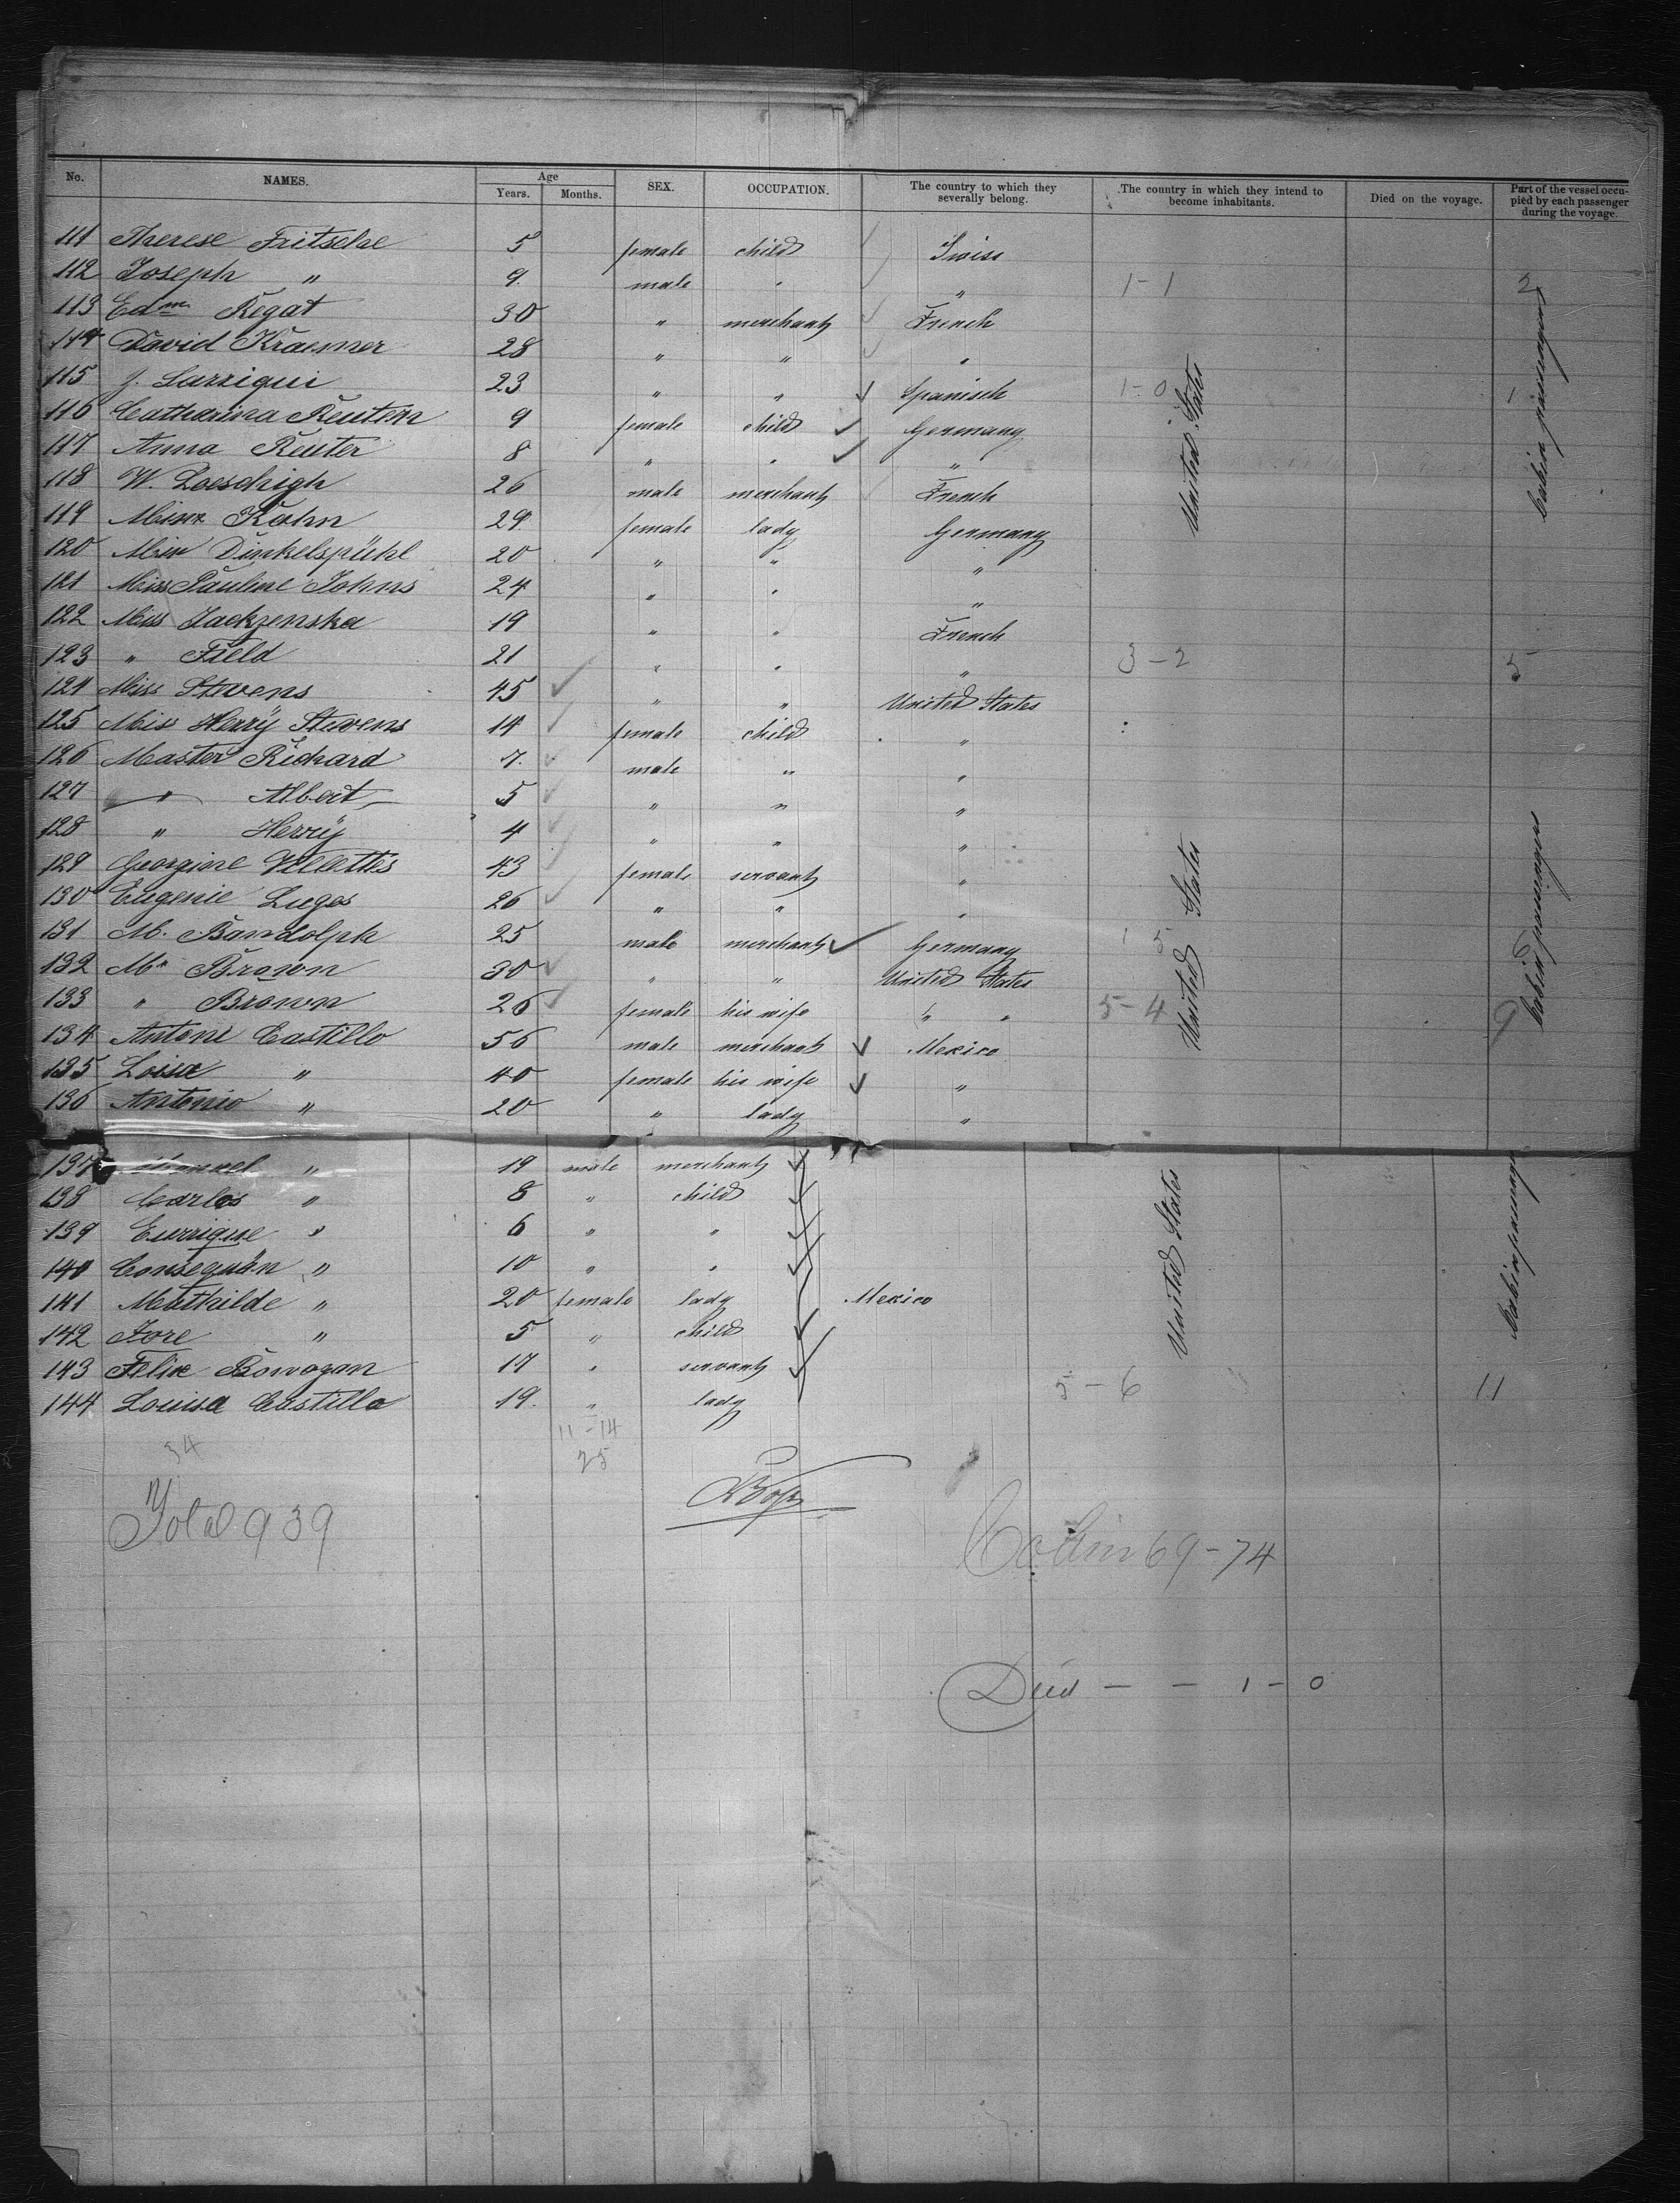 No. NAMES. Age Years. Months. SEX. OCCUPATION. The country to which they severally belong. The country in which they intend to become inhabitants. Died on the voyage. Part of the vessel occupied by each passenger during the voyage.
111 Therese Fritsche 5 female child Swiss
112 Joseph " 9 male " " 1-1 2
113 Edm. Regat 30 " merchant French
114 David Kraemer 28 " " "
115 J. Larrigui 23 " " Spanisch 1-0 1
116 Catharina Reuter 9 female child Germany
117 Anna Reuter 8 " " "
118 W. Loeschigh 26 male merchant French
119 Kahn 29 female lady Germany
120 Dinkelspühl 20 " " "
121 Miss Pauline Johns 24 " " "
122 Miss Jackzenska 19 " " French
123 " Field 21 " " " 3-2 5
124 Miss Stevens 45 " " United States
125 Miss Herrÿ Stevens 14 female child "
126 Master Richard 7. male " "
127 " Albert 5 " " "
128 " Herrÿ 4 " " "
129 Georgine 43 female servant "
130 Eugenie Luges 26 " " "
131 M. Bandolph 25 male merchant Germany
132 Mr Brown 30 " " United States
133 " Brown 26 female his wife " " 5-4 9
134 Antoni Castillo 56 male merchant Mexico
135 Loisa " 40 female his wife "
136 Antonio " 20 " lady "
137 Manuel " 19 male merchant
138 Carlos " 8 " child
139 Eurrique " 6 " "
140 Consequän " 10 " "
141 Mathilde " 20 female lady Mexico
142 Fore " 5 " child
143 Felix 17 " servant
144 Louisa Castilla 19. " lady 5-6 11
United States
Cabin passengers
United States
Cabin passengers
United States
Cabin passengers
11-14
34 25
Total 939
Cabin 69-74
Died - - 1-0